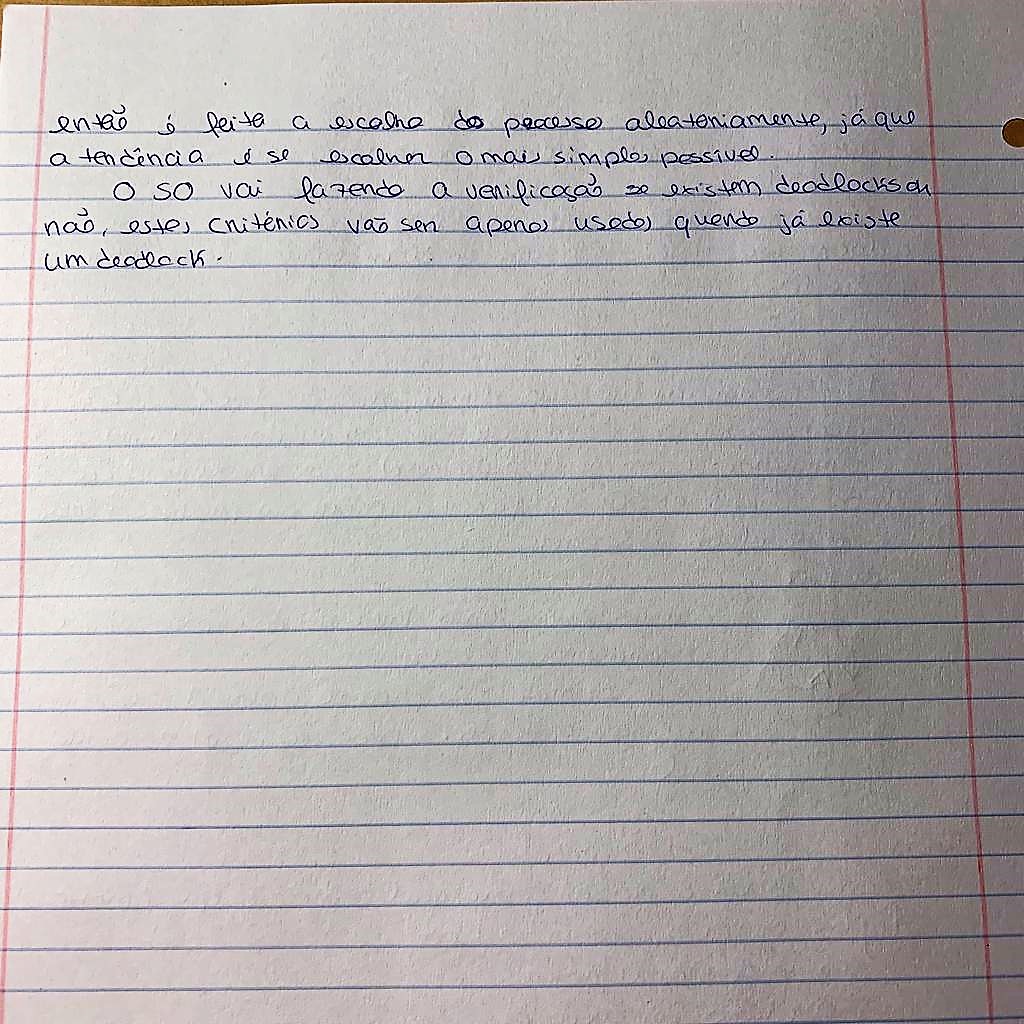 então é feita a escolha do processo aleatoriamente, já que
a tendência é se escolher o mais simples possível.
O SO vai fazendo a verificação se existem deadlocks ou
não, estes critérios vão ser apenas usados quando já existe
um deadlock.